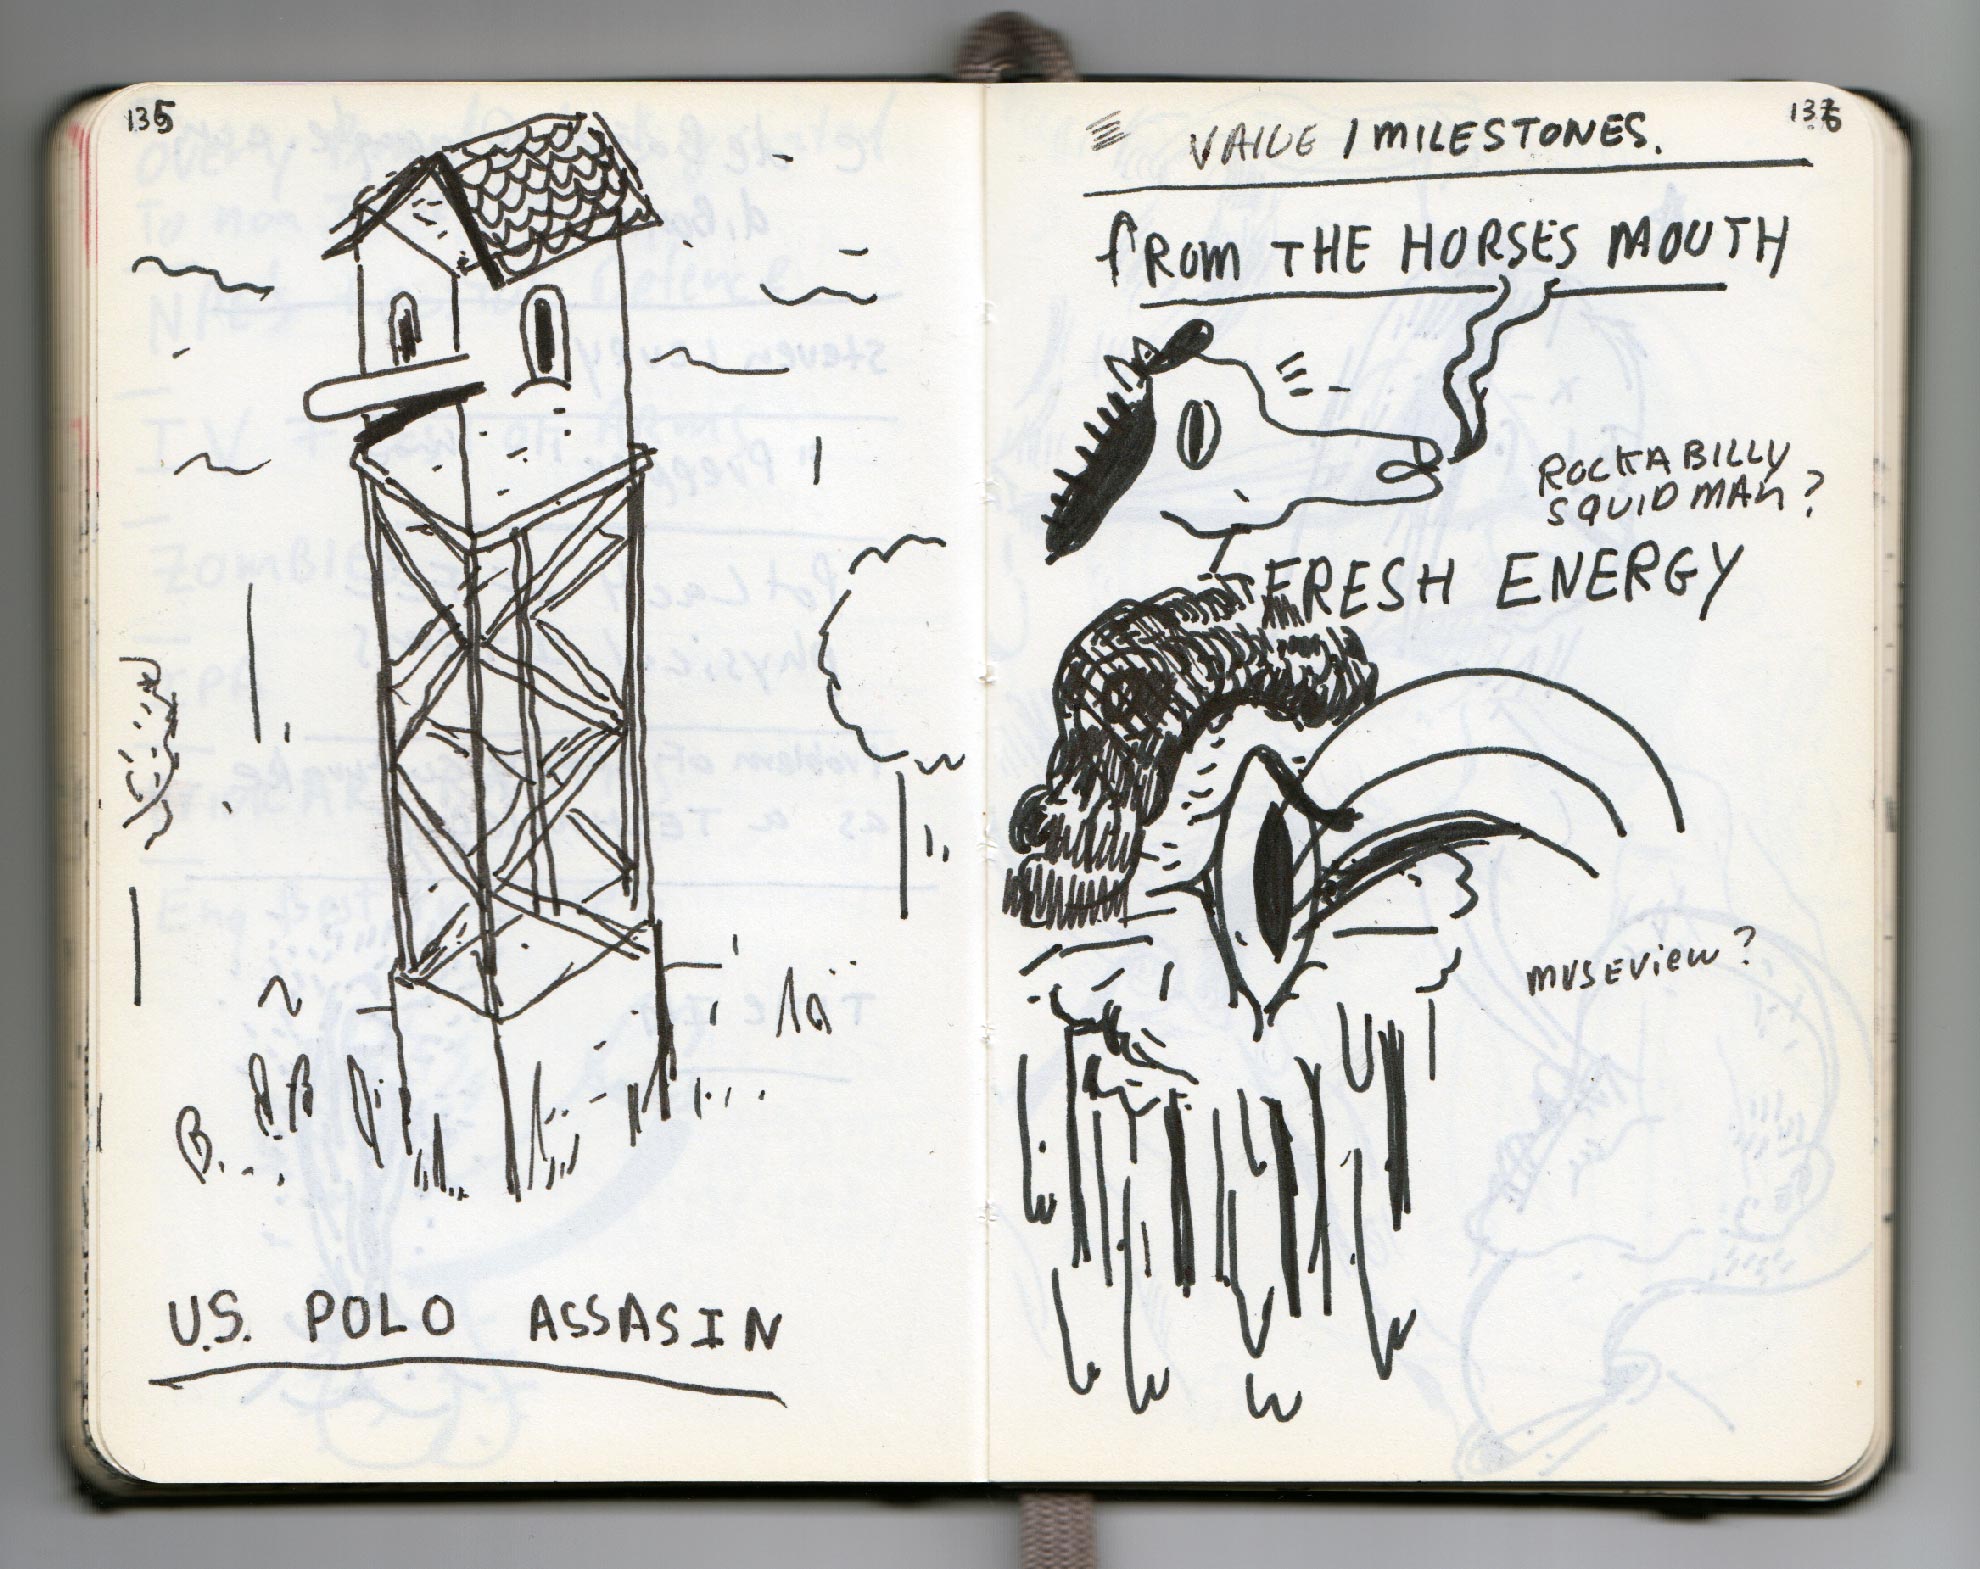 135
U.S. POLO ASSASIN
136
VALUE / MILESTONES.
fROM THE HORSES MOUTH
ROCKABILLY
SQUID MAN?
FRESH ENERGY
MUSEVIEW?